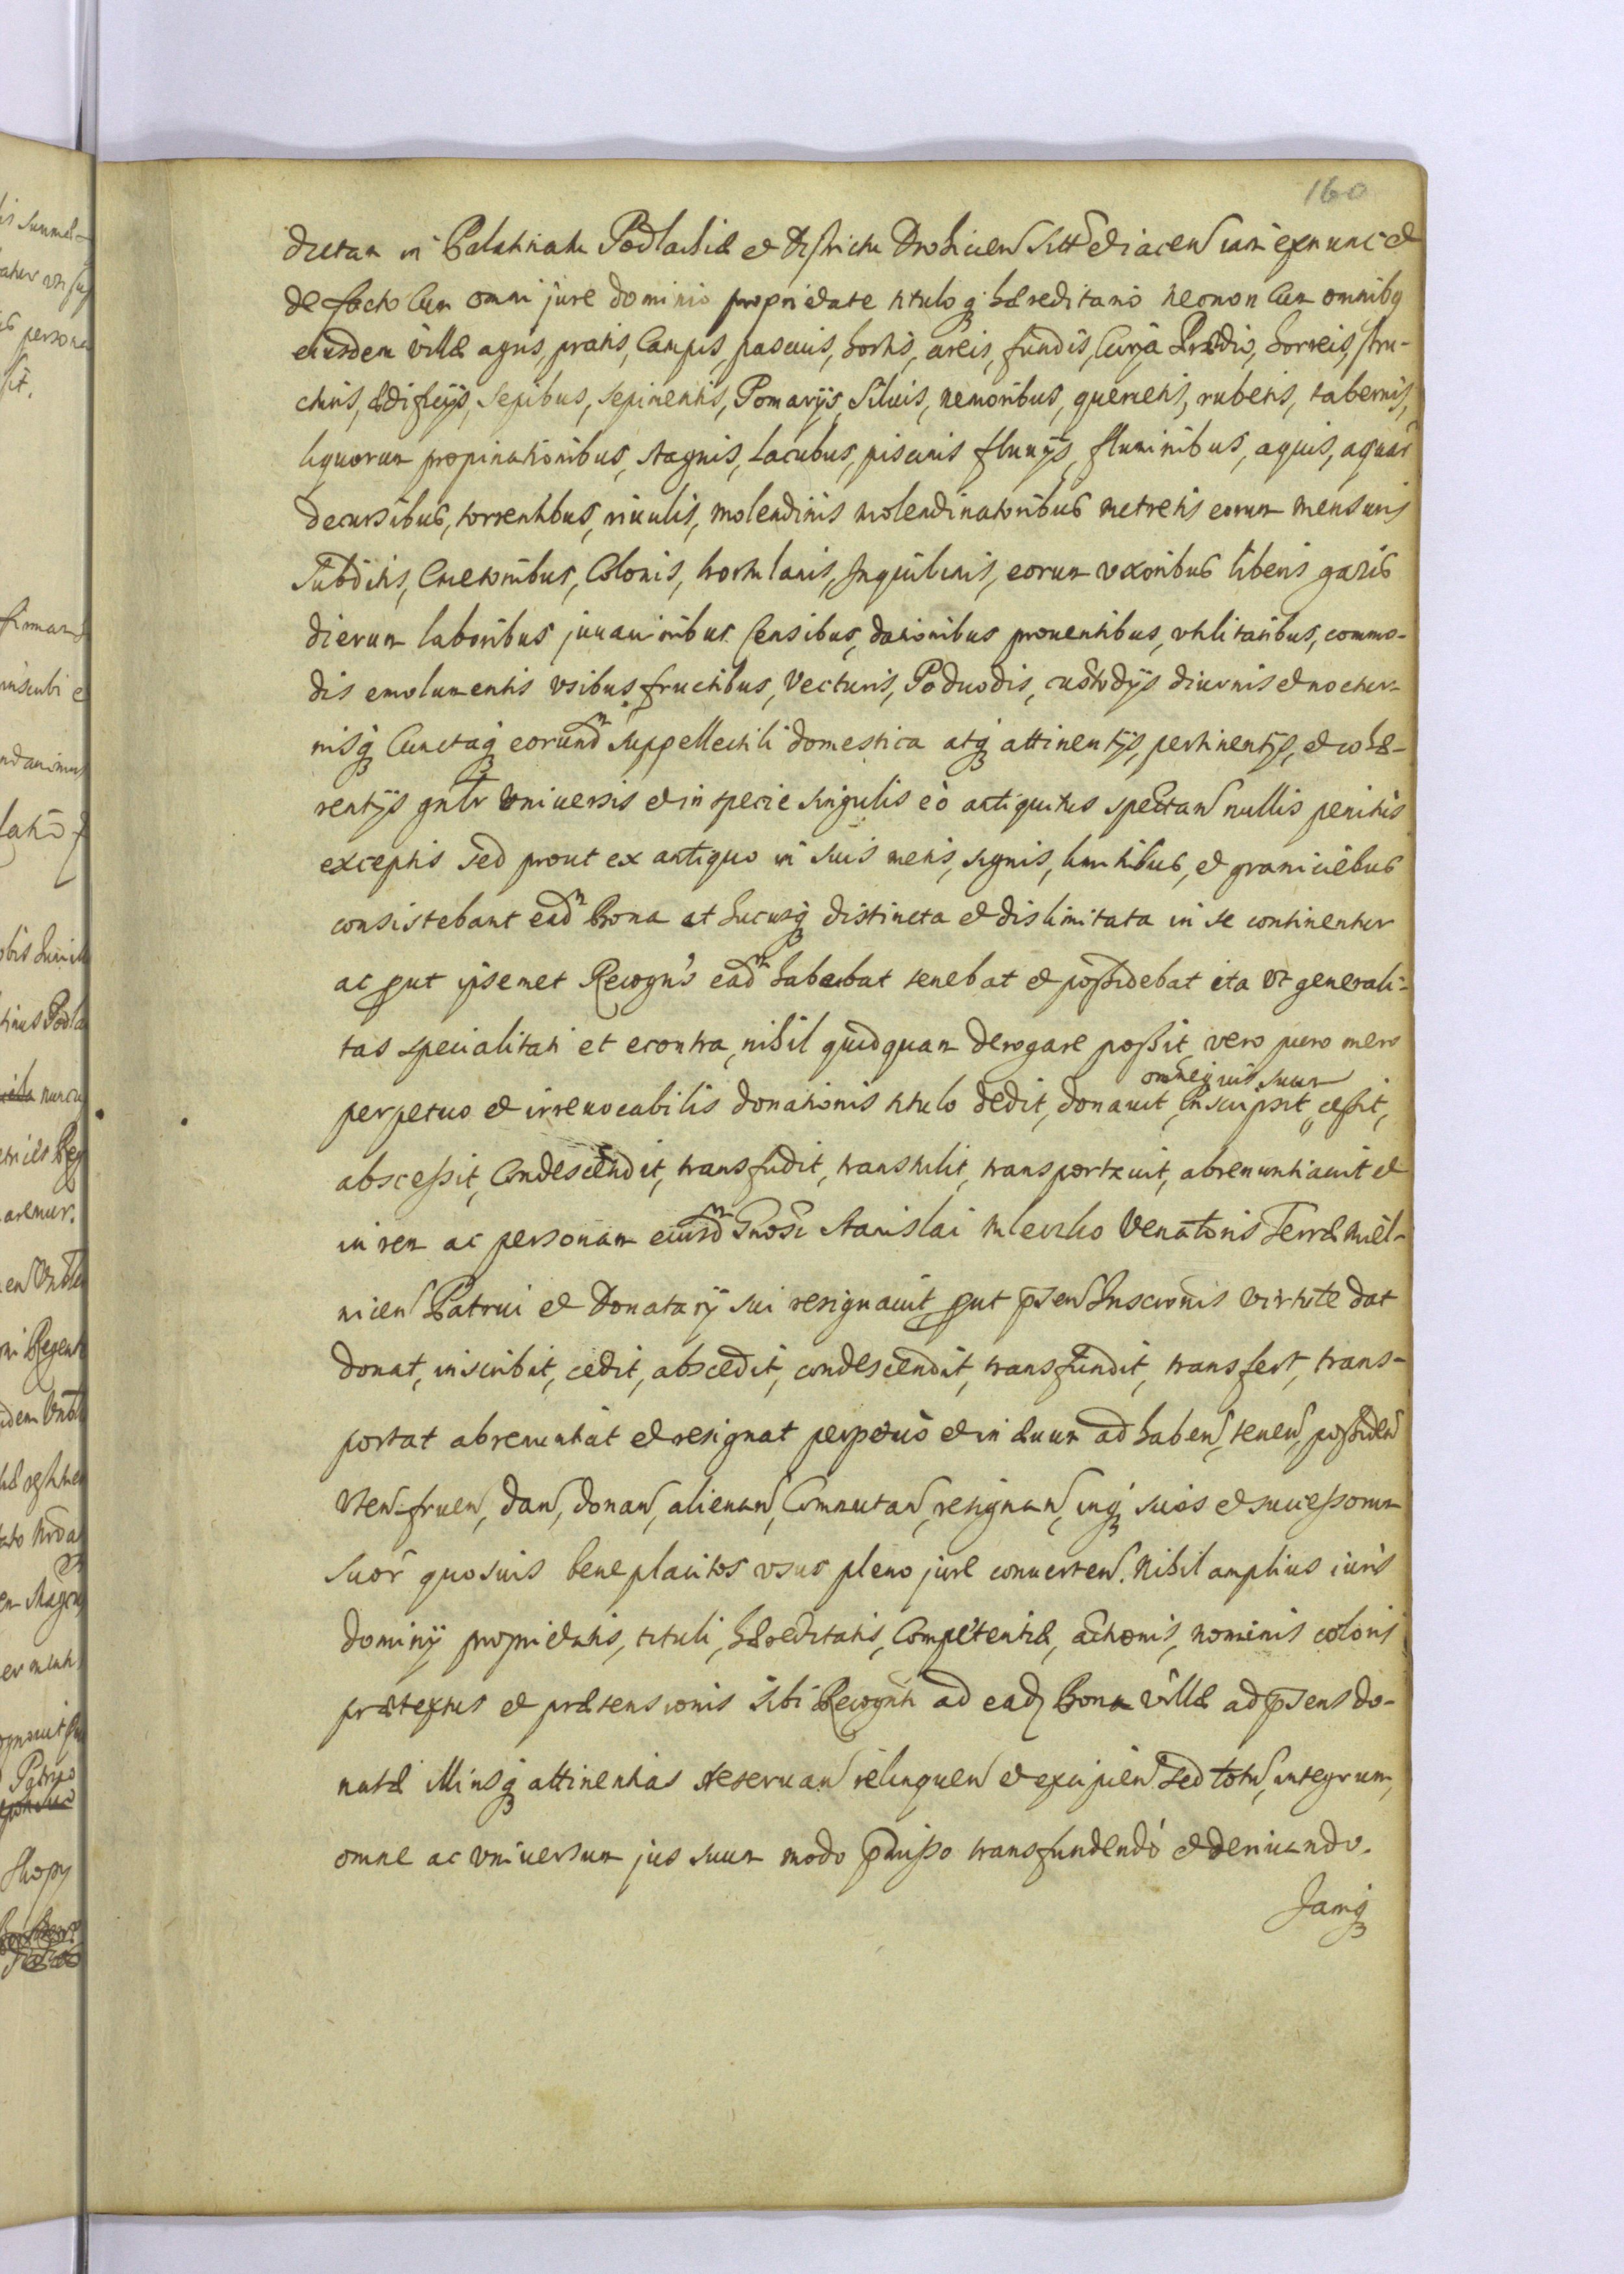 160
dictam in Palatinatu Podlachiæ et Districtu Drohicien sitt et iacen iam ex nunc et
de facto Cum omni jure dominio proprietate tituloq hæreditario necnon Cum omnibq
eiusdem villæ agris, pratis, Campis, pascuis, hortis, areis, fundis, Curja Prædio, horreis, stru-
cturis, ædificijs, sepibus, sepimentis, Pomarijs, Siluis, nemoribus, quercetis, rubetis, tabernis,
liquorum propinationibus, stagnis, Lacubus, piscinis fluuijs, fluminibus, aquis, aquar
decursibus, torrentibus, riuulis, molendinis molendinatoribus metretis eorum mensuris
Subditis, Cmetonibus, Colonis, hortulanis, Inquilinis, eorum vxoribus liberis gazis
dierum laboribus juuaminibus Censibus, dationibus prouentibus, vtilitatibus, commo-
dis emolumentis vsibus fructibus, Vecturis, Podwodis, custodijs diurnis et noctur-
nisq Cunctaq eorund suppellectili domestica atq attinentijs, pertinentijs, et cohæ-
rentijs gnlr Vniuersis et in specie singulis eò antiquitus spectan nullis penitus
exceptis sed prout ex antiquo in suis metis, signis, limitibus, et graniciebus
consistebant ead Bona et hucusq distincta et dislimitata in se continentur
ac put ipsemet Recogn's ead habebat tenebat et possidebat ita vt generali-
tas specialitati et econtra, nihil quidquam derogare possit, vero puro mero
omneq ius suum
perpetuo et irreuocabilis donationis titulo dedit, donauit, Inscripsit, cessit,
abscessit, Condescendit, transfudit, transtulit, transportauit, abrenuntiauit et
in rem ac personam eiusd Gnosi Stanislai Mleczko Venatoris Terræ Miel-
nicen Patrui et Donatarij sui resignauit put psen Inscronis virtute dat
donat, inscribit, cedit, abscedit, condescendit, transfundit, transfert, trans-
portat abrenuntiat et resignat perpetuò et in æuum ad haben, tenen, possiden
Vten fruen, dan, donan, alienan, Commutan, resignan, inq suos et successorum
suor quosuis beneplacitos vsus pleno jure conuerten. Nihil amplius iuris
dominij proprietatis, tituli, hæreditatis, Competentiæ, actionis, nominis coloris
prætextus et prætensionis sibi Recognti ad ead Bona villæ ad psens do-
natæ illiusq attinentias reseruan relinquen et excipien sed totu, integrum,
omne ac vniuersum jus suum modo pmisso transfundendó et deriuando.
Jamq